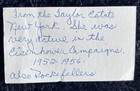 From the Taylor Estate
New York. She was
very active in the
Eisenhower Campaigns.
1952-1956.
also Rockefellers